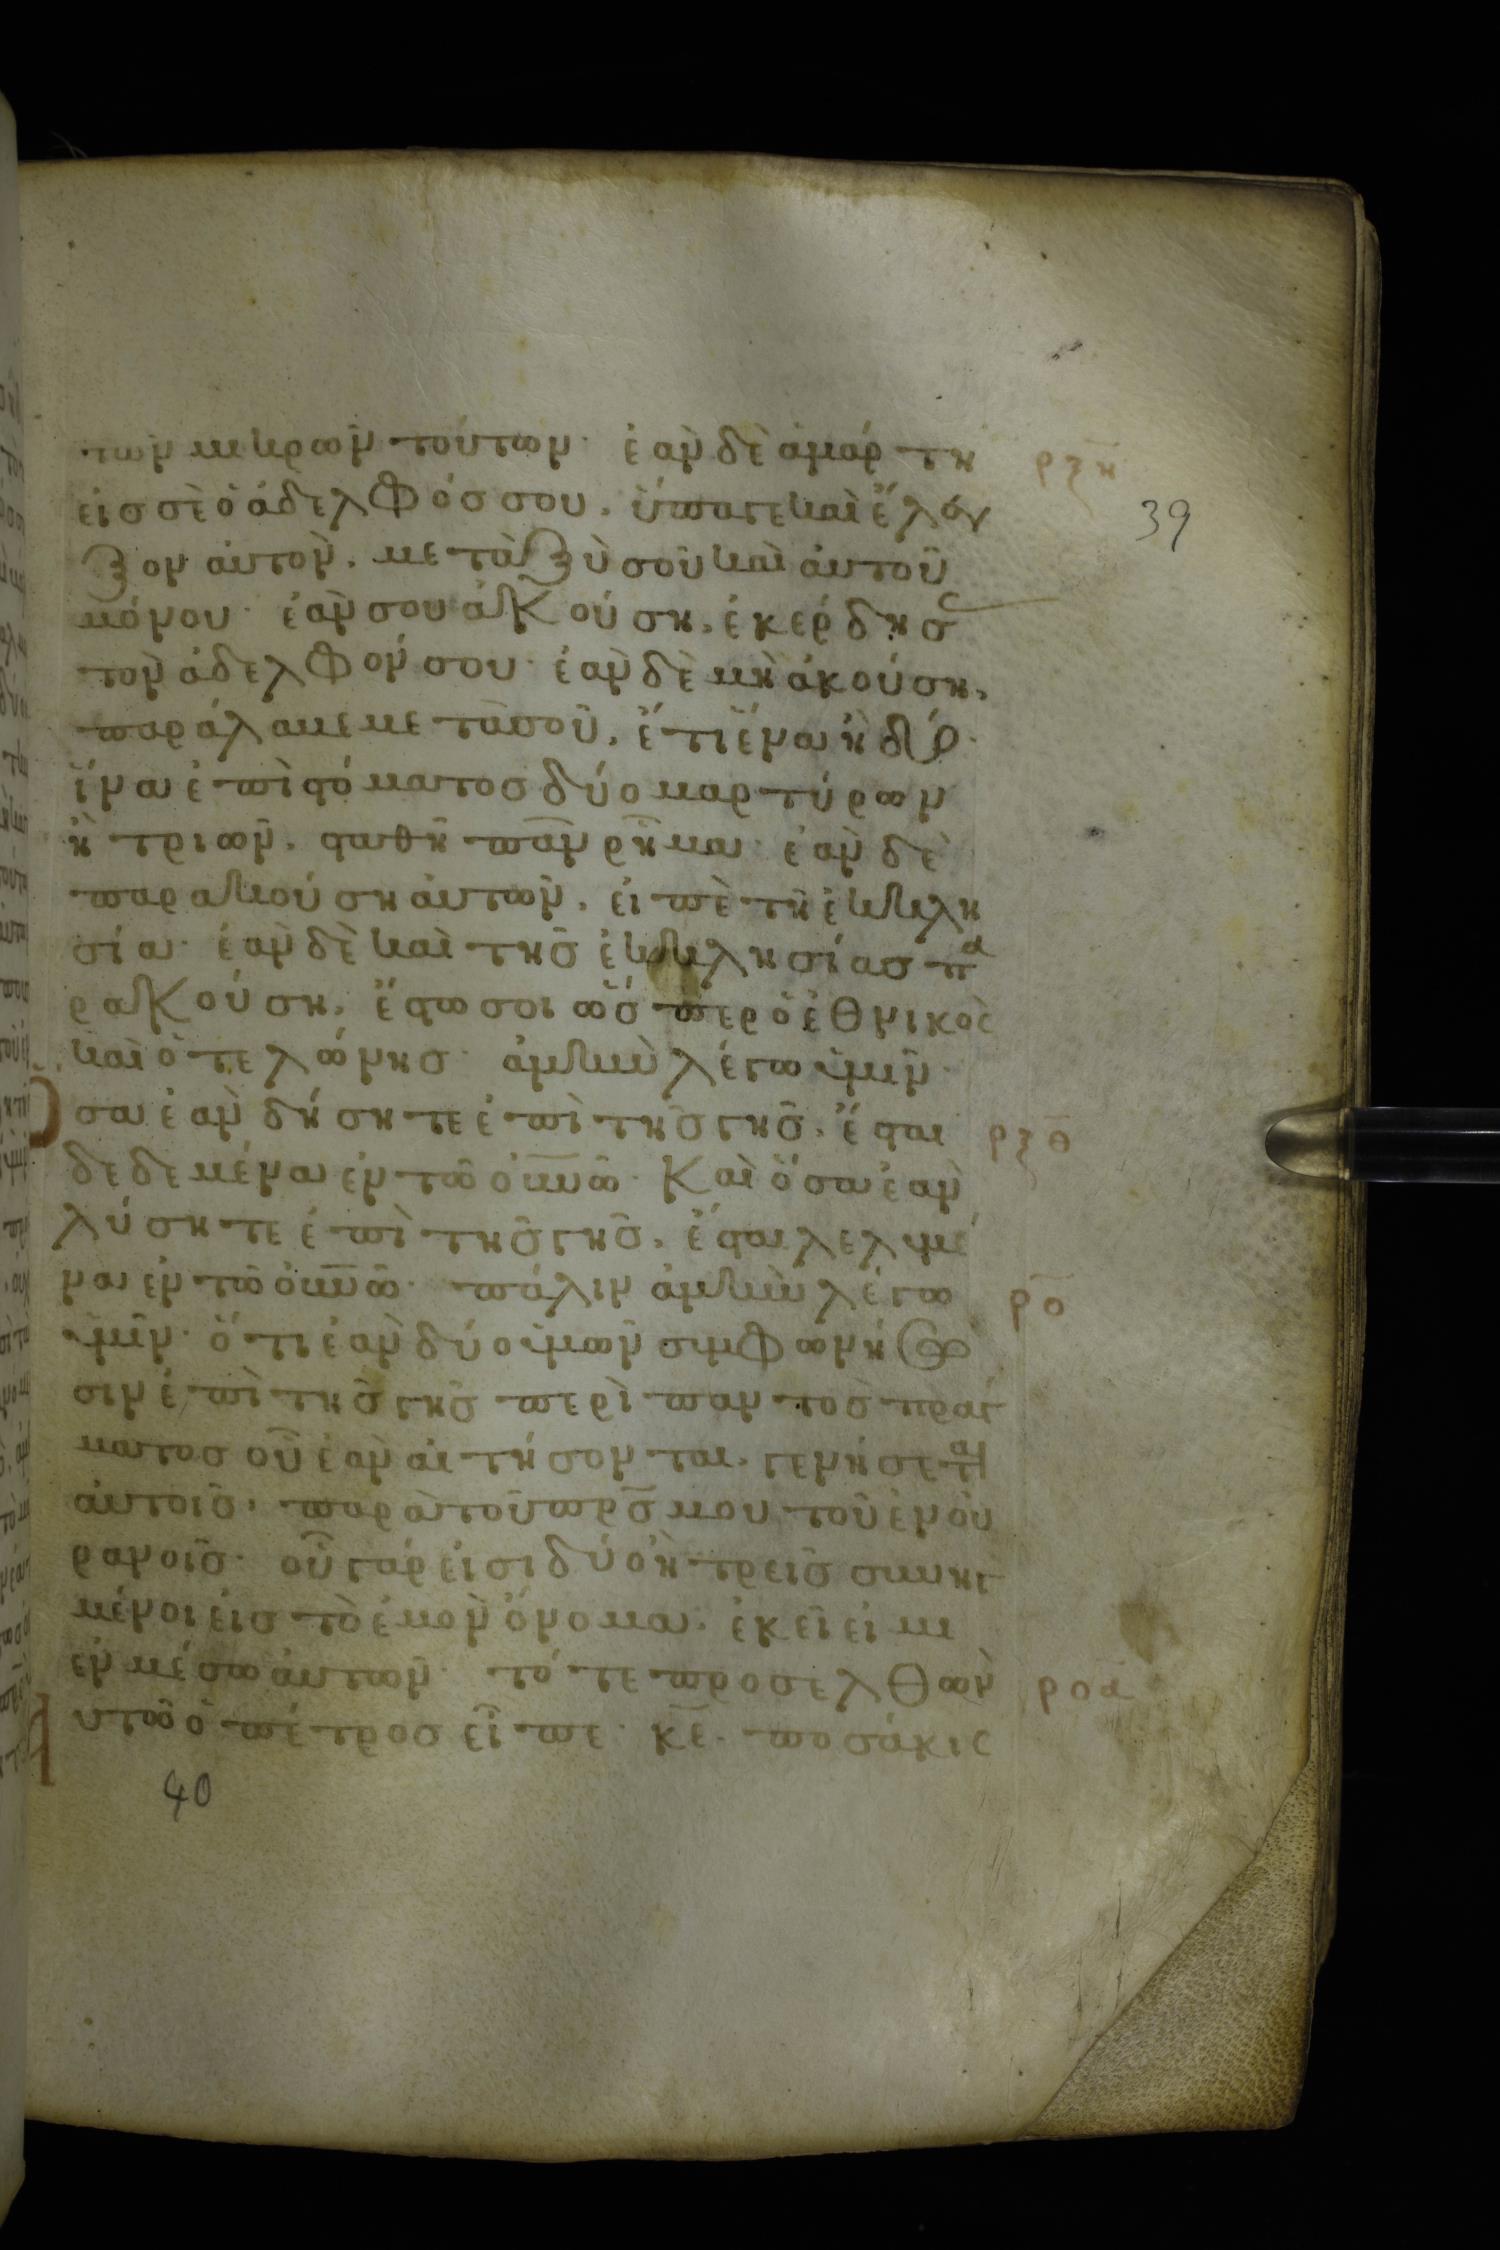 τῶν μικρῶν τούτων· ἐὰν δὲ ἁμάρτη ρξη
εἰς σὲ ὁ ἀδελφός σου, ὕπαγε καὶ ἔλεγ
39
ξον αὐτὸν, μεταξὺ σοῦ καὶ αὐτοῦ
μόνου· ἐάν σου ἀκούση, ἐκέρδησ
τὸν ἀδελφόν σου· ἐὰν δὲ μὴ ἀκούση,
παράλαμε μετὰ σοῦ, ἔτι ἕνα ἢ δύο·
ἵνα ἐπὶ στόματος δύο μαρτύρων
ἢ τριῶν, σταθῆ πᾶν ρῆμα· ἐὰν δὲ
παρακούση αὐτῶν, εἰπὲ τῆ ἐκκλη
σία· ἐὰν δὲ καὶ τῆς ἐκκλησίας πα
ρακούση, ἔστω σοι ὥσπερ ὁ ἐθνικὸς
καὶ ὁ τελώνης· ἀμὴν λέγω ὑμῖν·
Ὅσα ἐὰν δήσητε ἐπὶ τῆς γῆς, ἔσται ρξθ
δεδεμένα ἐν τῶ οὐνῶ· Καὶ ὅσα ἐὰν
λύσητε ἐπὶ τῆς γῆς, ἔσται λελυμέ
να ἐν τῶ οὐνῶ· πάλιν ἀμὴν λέγω ρο
ὑμῖν· ὅτι ἐὰν δύο ὑμῶν συμφωνήσω
σιν ἐπὶ τῆς γῆς περὶ παντὸς πράγ
ματος οὗ ἐὰν αἰτήσονται, γενήσεται
αὐτοῖς, παρὰ τοῦ πρς μου τοῦ ἐν οὐ
ρανοῖς· οὗ γάρ εἰσι δύο ἢ τρεῖς συνηγ
μένοι εἰς τὸ ἐμὸν ὄνομα, ἐκεῖ εἰμι
ἐν μέσω αὐτῶν· τότε προσελθὼν ροα
Αὐτῶ ὁ πέτρος εἶπε· κε· ποσάκις
40